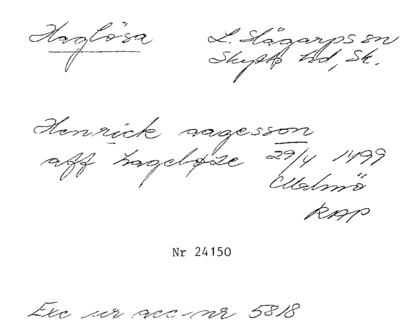 Haglösa L. Slågarps sn
Skytts hd, Sk.
Henrick aagesson
aff hageløze 29/4 1499
Malmö
RAP
Nr 24150
Exc ur acc-nr 5818